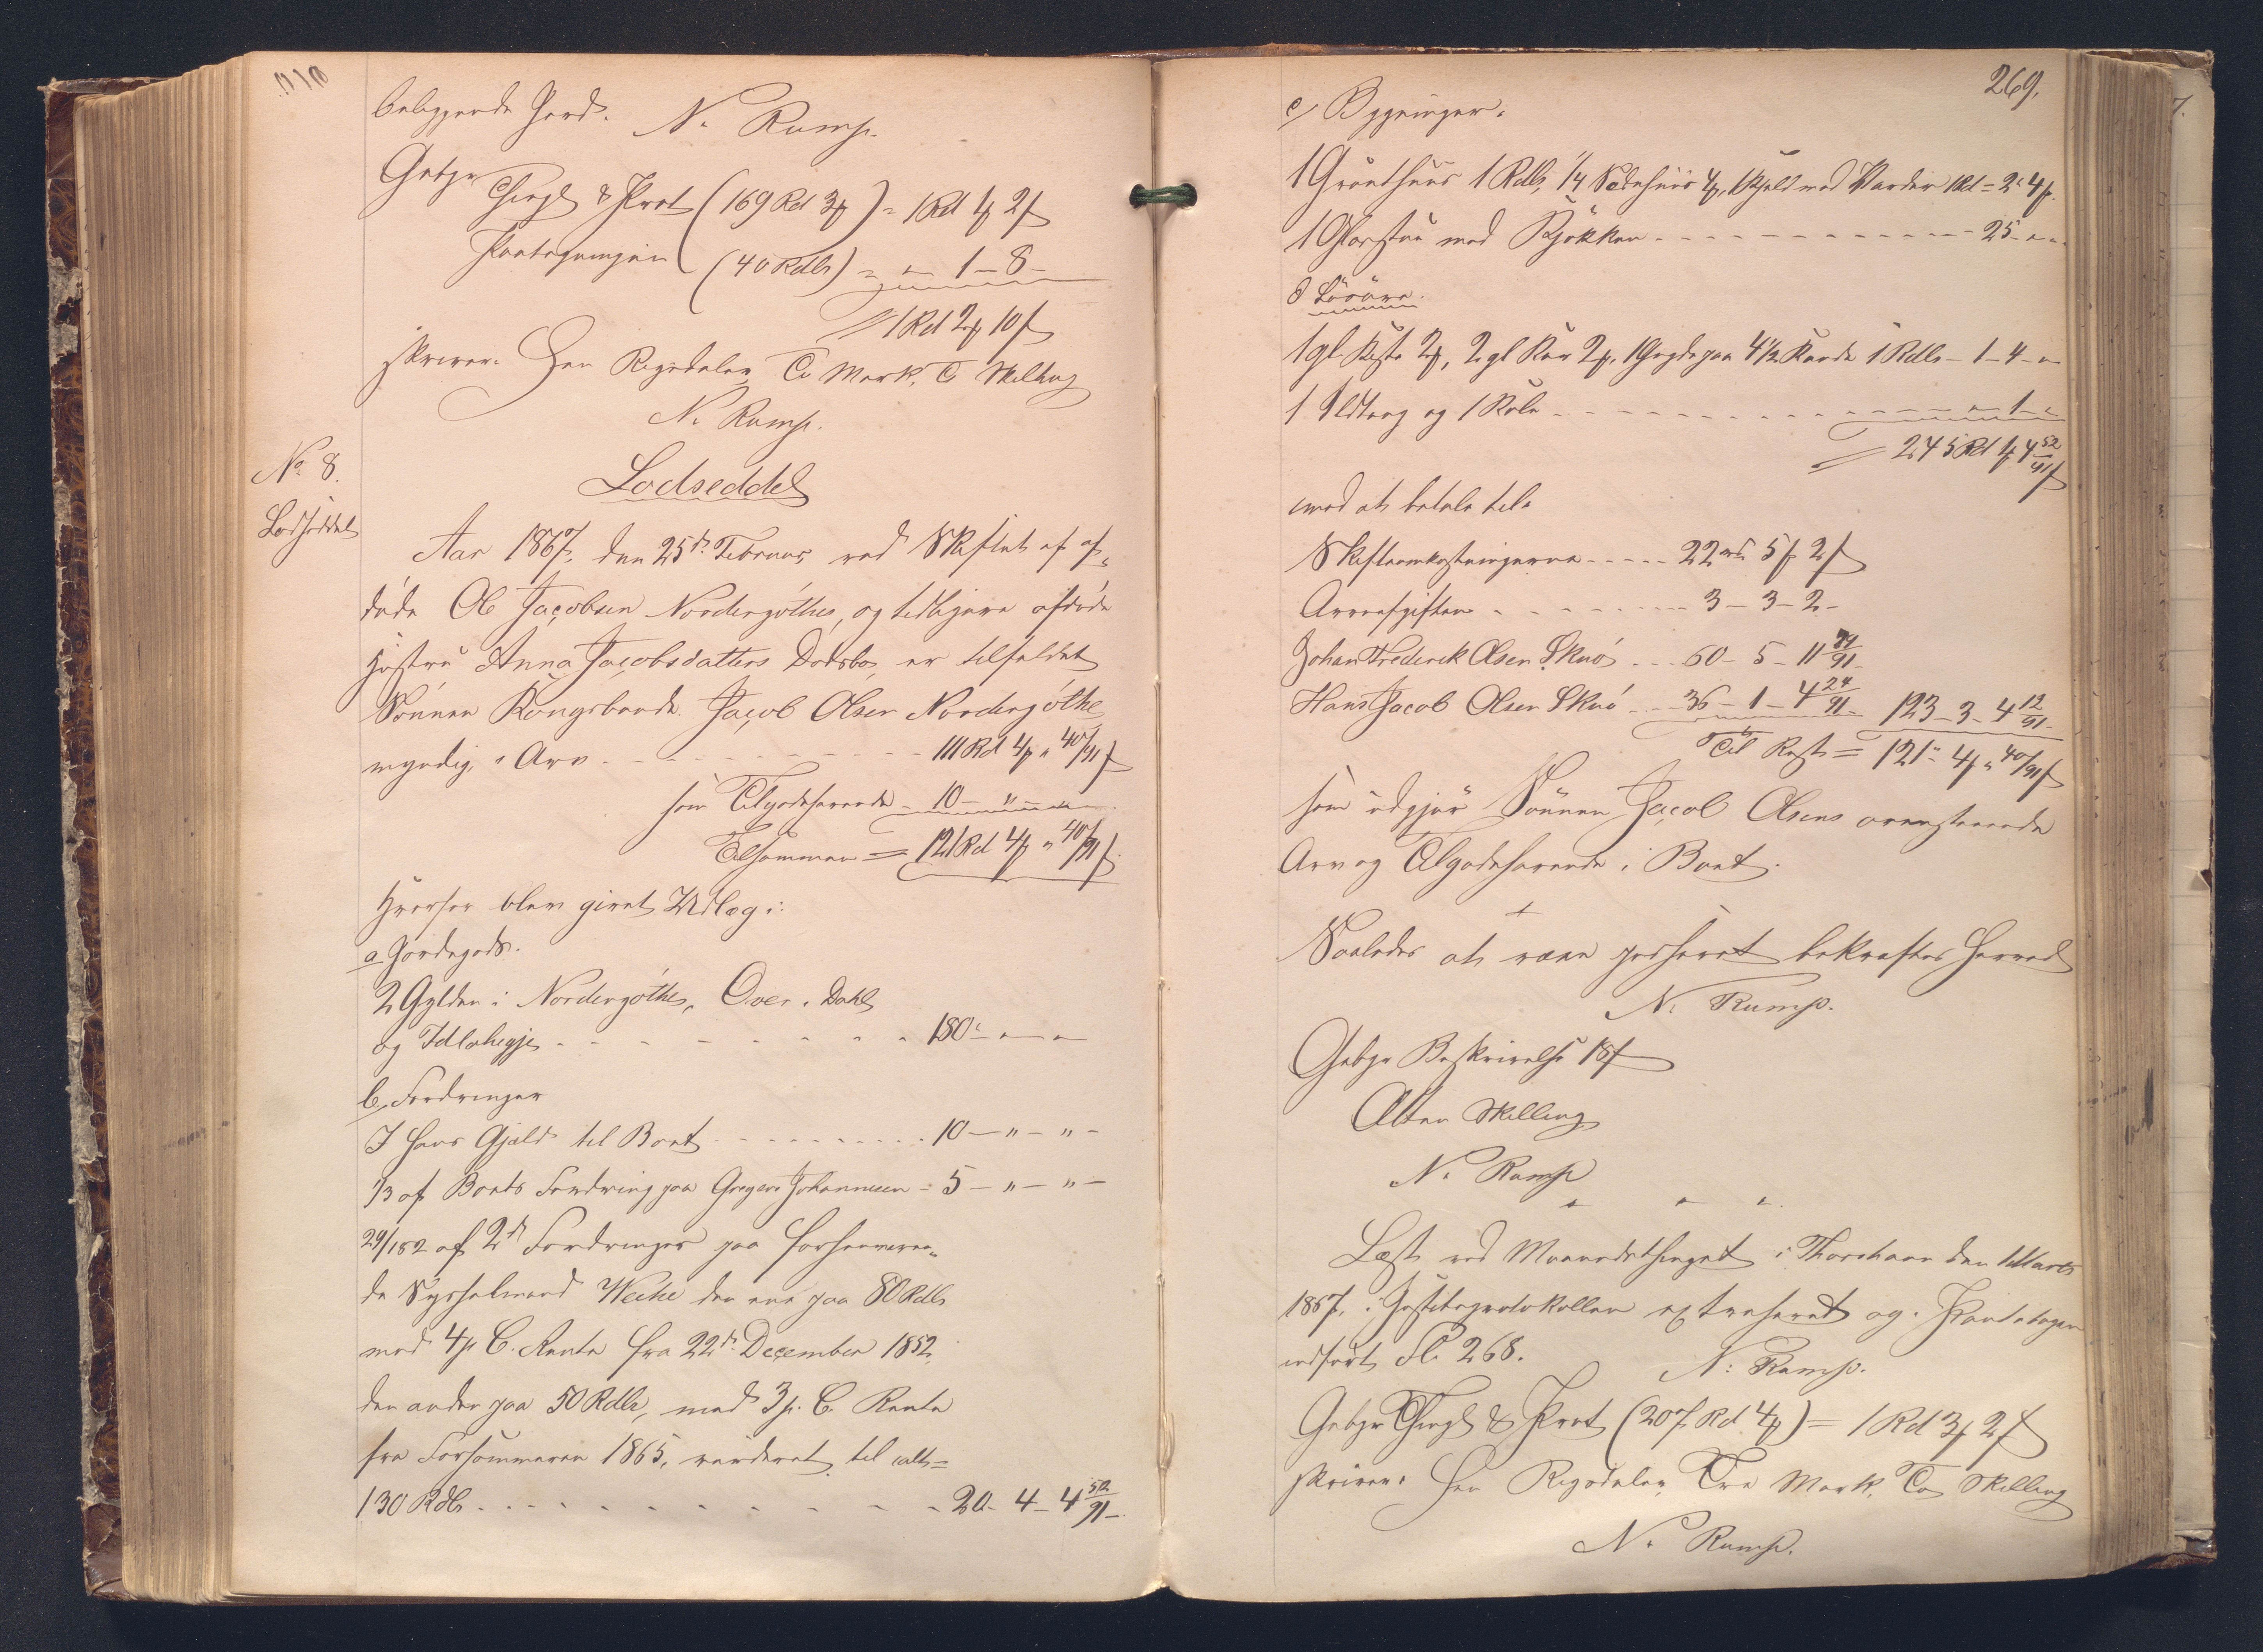 beliggende Jord.
N. Rump.
Gebyr Thingl & Prot (169 Rd 3 ₻) = 1 Rd 1 ₻ 2 ß
Paategningen (40 Rdlr) = " – 1 – 8 –
= 1 Rd 2 ₻ 10 ß
skriver: Een Rigsdaler, To Mark, Ti Skilling
N. Rump.
No. 8.
Lodseddel
Lodseddel
Aar 1867, den 25de Februar, ved Skiftet af af-
døde Ole Jacobsen Nordergøthes, og tidligere afdøde
Hustru Anna Jacobsdatters Dødsbo, er tilfaldet
Sønnen Kongsbonde Jacob Olsen Nordergøthe
myndig, i Arv - - - 111 Rd 4 ₻ " 40/91 ß
som Tilgodehavende - 10 – " – " –
Tilsammen = 121 Rd 4 ₻ " 40/91 ß
Hvorfor blev givet Udlæg i:
a Jordegods.
2 Gylden i Nordergøthe, Over i Dahl
og Idlahegje - - - 180 – " – "
b, Fordringer
I hans Gjæld til Boet - - - 10 – " – " –
1/3 af Boets Fordring paa Gregers Johannesen = 5 – " – " –
29/182 af 2de Fordringer paa forhenværen-
de Sysselmand Weihe den ene paa 80 Rdlr
med 4 p. C. Rente fra 22de December 1852,
den anden paa 50 Rdlr, med 3 p. C. Rente
fra Forsommeren 1865, vurderet til alt =
130 Rdlr - - - 20 – 4 – 4 52/91 –
269.
c, Bygninger.
1 Grønthuus 1 Rdlr, 1/4 Sodehuus 4 ₻, 1 Hjeld med Varder 1 Rd = 2 " 4 ₻.
1 Glarstue med Kjøkken - - - 25 – " –
d Løsøre.
1 gl Kiste 2 ₻, 2 gl Kar 2 ₻, 1 Gryde paa 4 1/2 Kande 1 Rdlr – 1 – 4 – "
1 Ildtang og 1 Kule - - - " – 1 – "
= 245 Rd 1 ₻ 4 52/91 ß
mod at betale til:
Skifteomkostningerne - - - 22 rd 5 ₻ 2 ß
Arveafgiften - - - 3 – 3 – 2 –
Johan Frederik Olsen Skuø - - - 60 – 5 – 11 79/91 –
Hans Jacob Olsen Skuø - - - 36 – 1 – 4 24/91 – 123 – 3 – 4 12/91 –
Til Rest = 121 " 4 ₻ " 40/91 ß
som udgjør Sønnen Jacob Olsens ovenstaaende
Arv og Tilgodehavende i Boet.
Saaledes at være passeret bekræftes herved
N. Rump.
Gebyr Beskrivelse 18 ß
Atten Skilling
N. Rump
Læst ved Maanedsthinget i Thorshavn den 1 Marts
1867, i Justitsprotokollen extraheret og i Pantebogen
indført Fol. 268.
N: Rump.
Gebyr Thingl & Prot (207 Rd 4 ₻) = 1 Rd 3 ₻ 2 ß
skriver: Een Rigsdaler, Tre Mark, To Skilling
N. Rump.